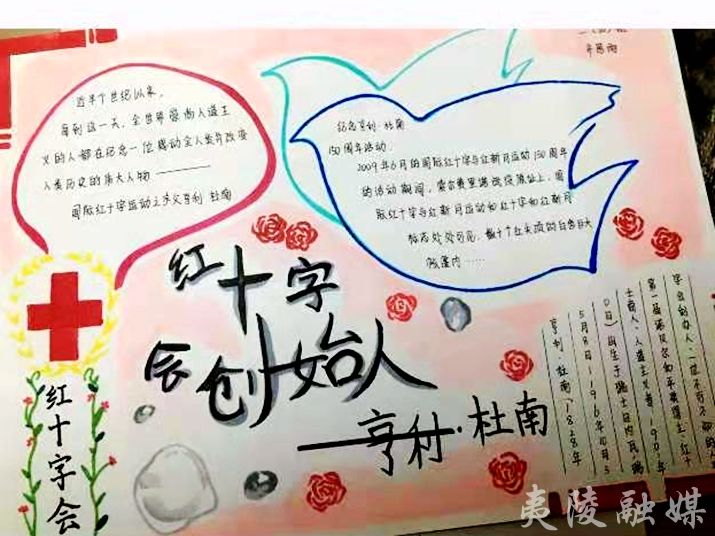 近半个世纪以来，
每到这一天，全世界崇尚人道主
义的人都在纪念一位感动全人类并改变
人类历史的伟大人物————
国际红十字运动之父亨利·杜南
纪念亨利·杜南
150周年活动.
2009年6月的国际红十字与红新月运动150周年
的活动期间，索尔费里诺城
际红十字与红新月运动的红十字和红新月
标志处处可见，数十个红头顶的白色巨大
帐篷内……
红十字
会创始人
——亨利·杜南
红十字会
亨利·杜南(1828年
5月8日—1910年10月3
0日)出生于瑞士日内瓦，瑞
士商人、人道主义者，1901年
第一届诺贝尔和平奖得主，红十
字会创办人。一位不可
夷陵融媒